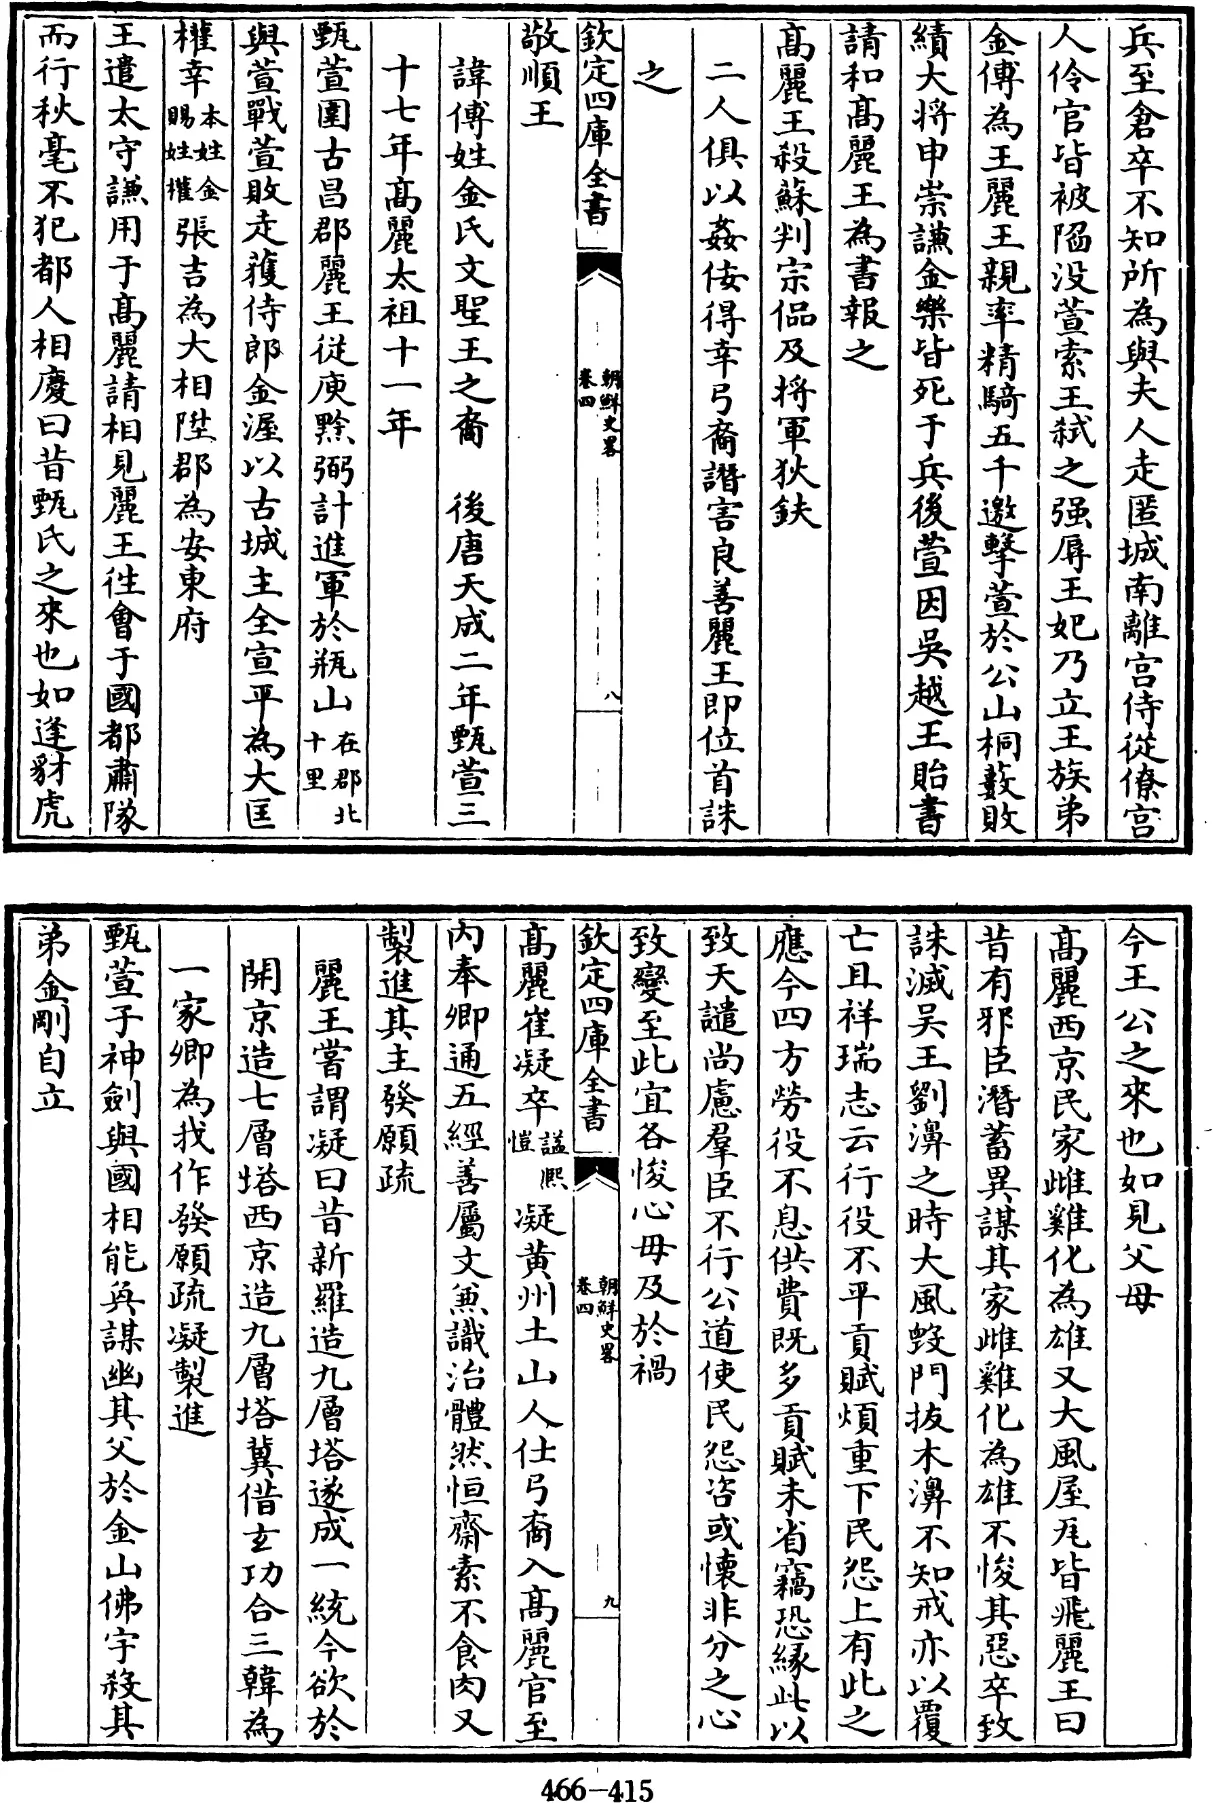 兵至倉卒不知所為與夫人走匿城南離宫侍從僚宫
人伶官皆被陷没萱索王弑之强辱王妃乃立王族弟
金傅為王麗王親率精騎五千邀擊萱於公山桐藪敗
績大將申崇謙金樂皆死于兵後萱因吳越王貽書
請和髙麗王為書報之
髙麗王殺蘇判宗偘及將軍狄鈇
二人俱以姦佞得幸弓裔譖害良善麗王即位首誅
之
欽定四庫全書
朝鮮史畧
卷四
八
敬順王
諱傅姓金氏文聖王之裔 後唐天成二年甄萱三
十七年髙麗太祖十一年
甄萱圍古昌郡麗王從庾黔弼計進軍於瓶山在郡北
十里
與萱戰萱敗走獲侍郎金渥以古城主全宣平為大匡
權幸本姓金
賜姓權張吉為大相陞郡為安東府
王遣太守謙用于髙麗請相見麗王徃會于國都肅隊
而行秋毫不犯都人相慶曰昔甄氏之來也如逢豺虎
今王公之來也如見父母
髙麗西京民家雌雞化為雄又大風屋瓦皆飛麗王曰
昔有邪臣潛蓄異謀其家雌雞化為雄不悛其惡卒致
誅滅吳王劉濞之時大風毁門拔木濞不知戒亦以覆
亡且祥瑞志云行役不平貢賦煩重下民怨上有此之
應今四方勞役不息供費既多貢賦未省竊恐緣此以
致天譴尚慮羣臣不行公道使民怨咨或懷非分之心
致變至此宜各悛心毋及於禍
欽定四庫全書
朝鮮史畧
卷四
九
髙麗崔凝卒諡熙
愷凝黄州土山人仕弓裔入髙麗官至
内奉卿通五經善屬文兼識治體然恒齋素不食肉又
製進其主發願疏
麗王嘗謂凝曰昔新羅造九層塔遂成一統今欲於
開京造七層塔西京造九層塔冀借玄功合三韓為
一家卿為我作發願疏凝製進
甄萱子神劍與國相能奐謀幽其父於金山佛宇殺其
弟金剛自立
466-415